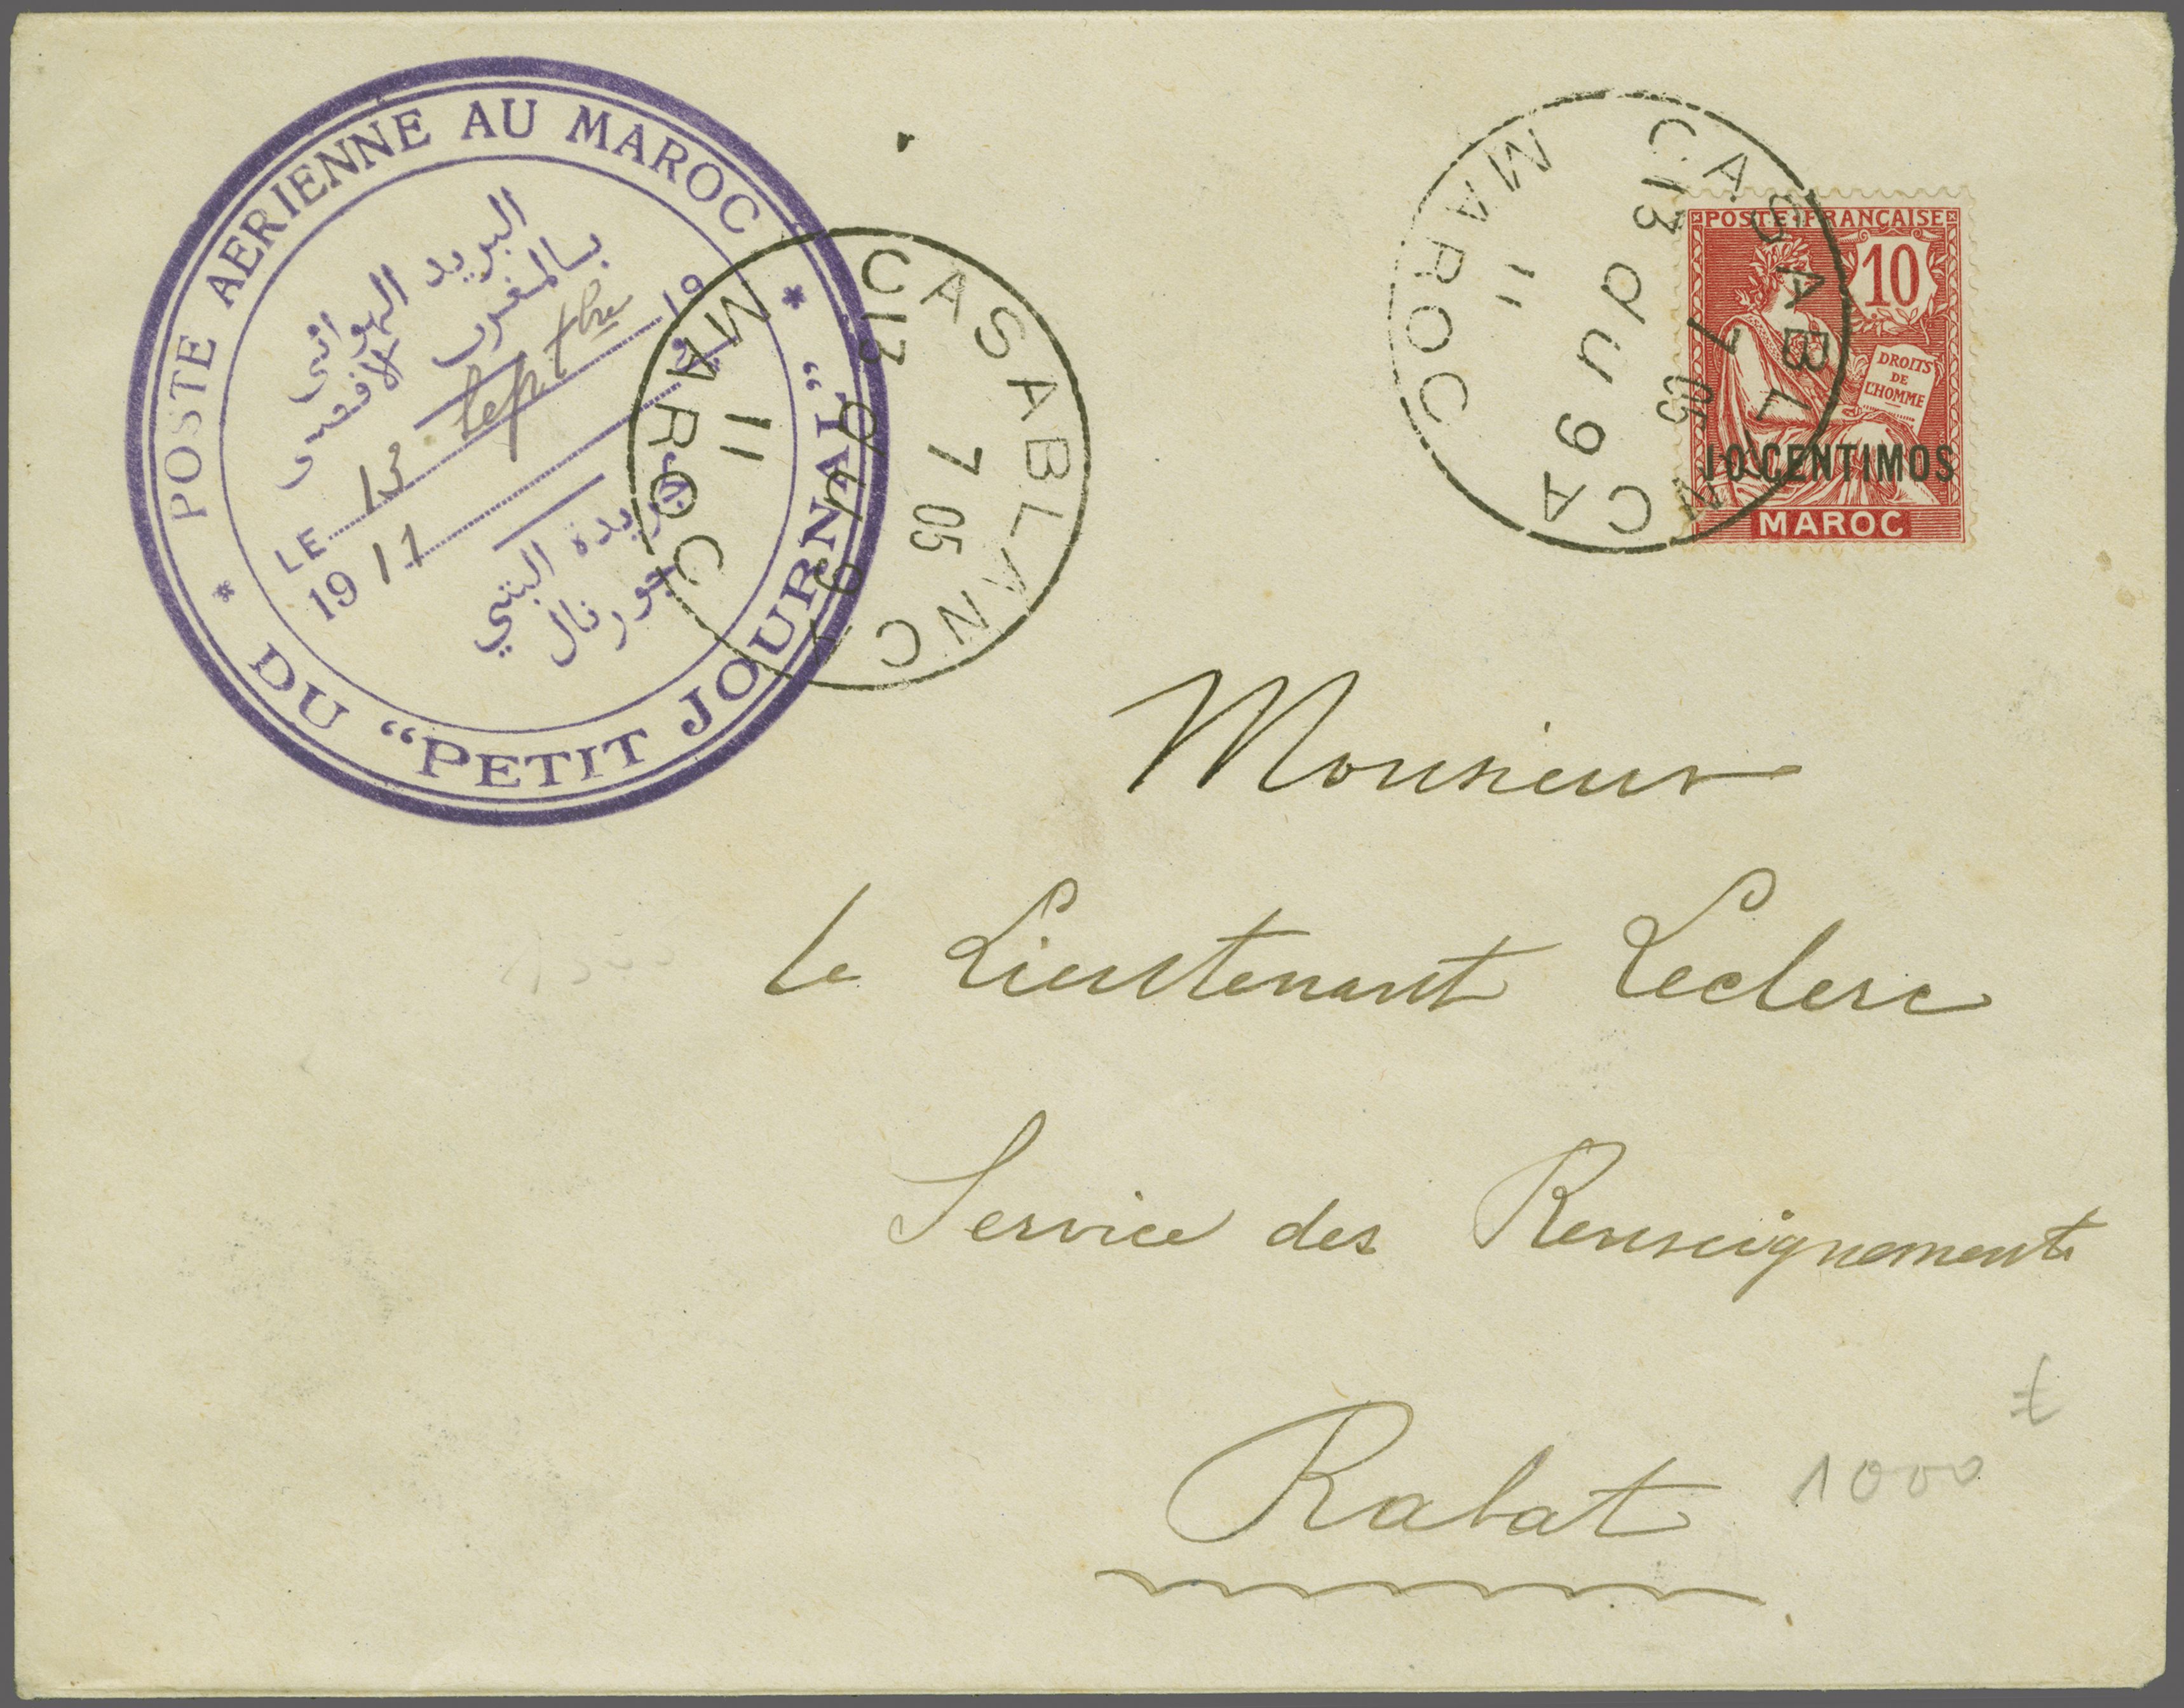 POSTE AERIENNE AU MAROC
البريد الهوائى
بالمغرب الافصى
LE 13 Septbre
19 11
١٩
جريدة البتي
جورنال
DU "PETIT JOURNAL"
CASABLANCA
13
7 05
11
MAROC
CASABLANCA
13
7 05
11
MAROC
POSTE FRANÇAISE
10
DROITS
DE
L'HOMME
10 CENTIMOS
MAROC
Monsieur
le Lieutenant Leclerc
Service des Renseignements
Rabat
1000